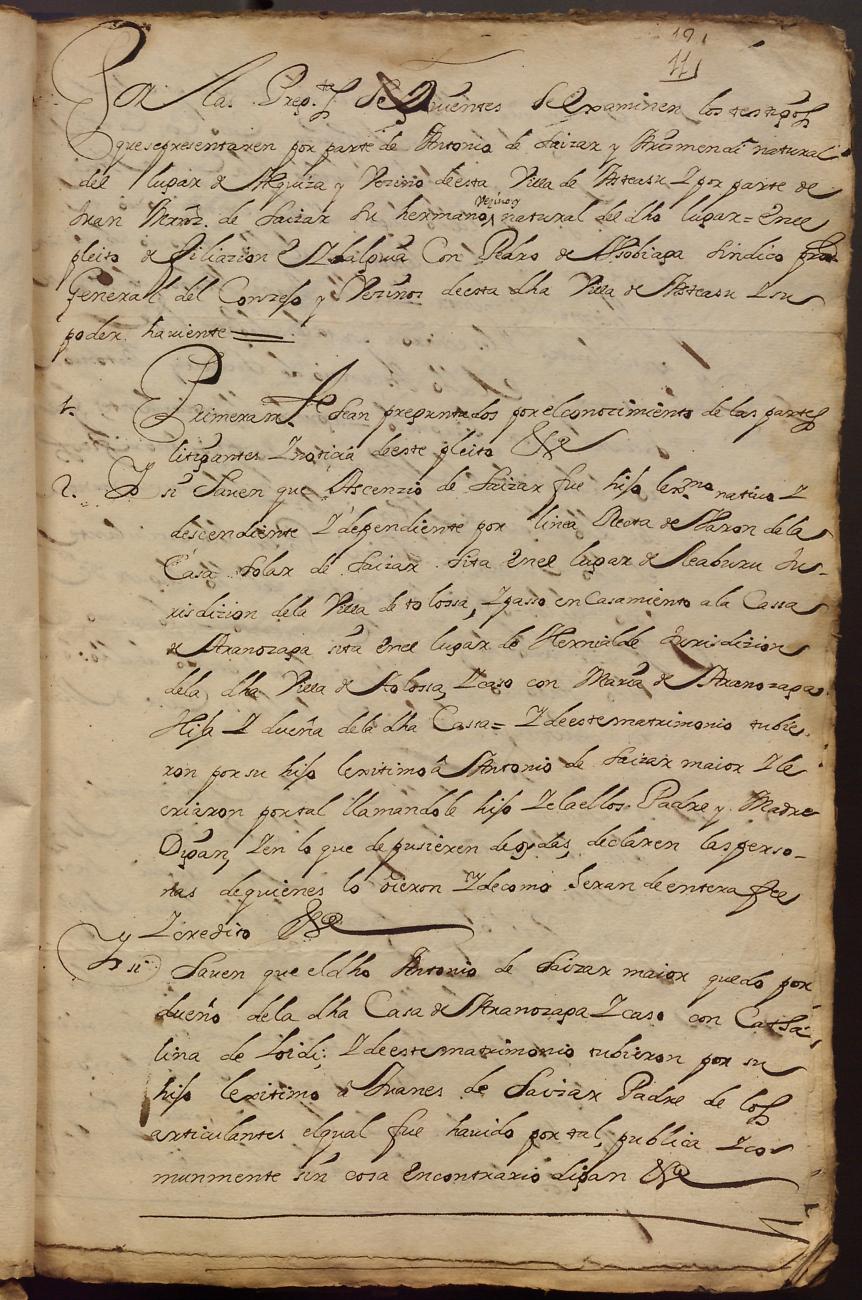 19
11
Por las Preg.tas Siguientes se Examinen los testigos
que se presentaren por parte de Antonio de Saizar y Arismendi natural
del lugar de Alquiza y Vezino de esta Villa de Asteasu Y por parte de
Juan Mrnz. de Saizar su hermano vezino y natural del dho lugar = En el
pleito de filiazion E Ydalguia Con Pedro de Asobiaga Sindico Pror
General del Conzejo y Vezinos de esta dha Villa de Asteasu Y su
poder haviente
1. Primeramte Sean preguntados por el conocimiento de las partes
litigantes Y noticia deeste pleito &a
2. Y si Saven que Ascenzio de Saizar fue hijo lexmo nativo Y
descendiente Y dependiente por linea Recta de Varon de la
Casa Solar de Saizar Sita En el lugar de Leaburu Ju-
risdizion dela Villa de tolossa, Y passo en Casamiento a la Cassa
de Aranozaga sita En el lugar de Hernialde Jurisdizion
dela dha Villa de tolossa, Y caso con Maria de Aranozaga
Hija Y dueña dela dha Cassa = Y de este matrimonio tubie-
ron por su hijo lexitimo â Antonio de Saizar maior Y le
criaron por tal llamandole hijo Y el a ellos Padre y Madre
Digan, Y en lo que depusieren de oydas, declaren las perso-
nas de quienes lo oieron Y de como Seran de entera fee
Y credito &a
Y si Saven que el dho Antonio de Saizar maior quedo por
dueño dela dha Casa de Aranozaga Y caso con Catha-
lina de Loidi; Y de este matrimonio tubieron por su
hijo lexitimo â Juanes de Saizar Padre de los
articulantes el qual fue havido por tal, publica Y co-
munmente sin cosa En contrario digan &a